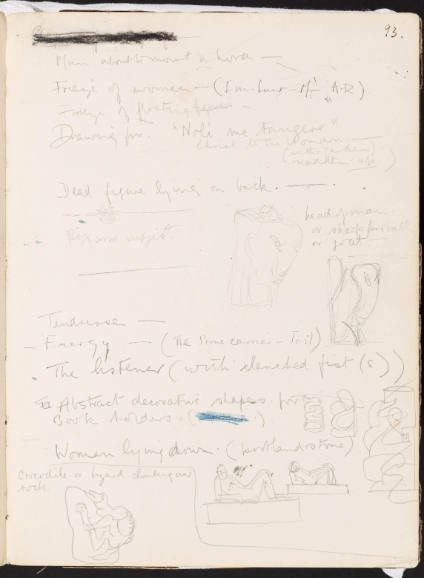 93.
Man about to mount a horse —
Frieze of women — ( A.R)
Frieze of floating figures —
Drawing for "Noli me Tangere"
Christ to the Woman —
(in the Garden)
Dead figure lying on back. —
Box
head of man
or sheep
or goat
Tenderness —
— Energy — (The Stone carver - Toil)
The listener (with clenched fist (s))
Abstract decorative shapes for
Book borders. (
Woman lying down. (portland stone)
Crocodile or lizard climbing over
rock